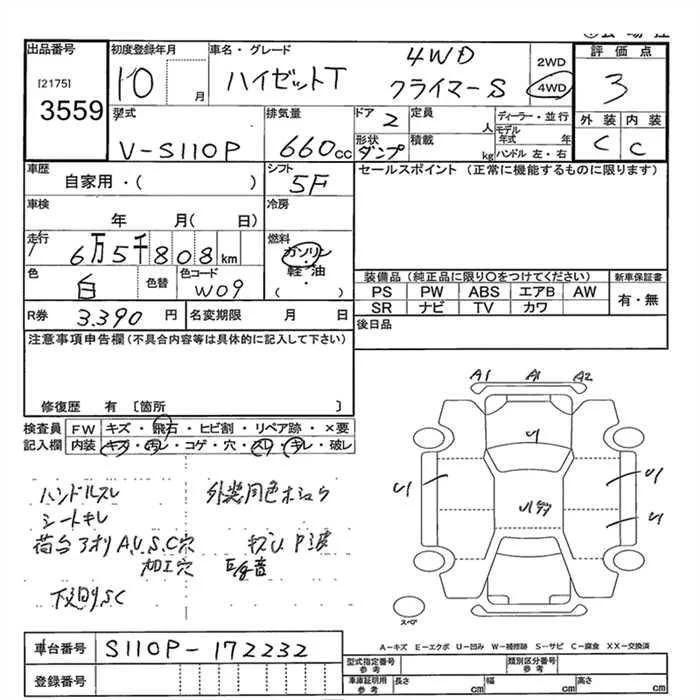 出品番号
[2175]
3559
初度登録年月
10
月
車名・グレード
ハイゼットT
4WD
クライマーS
2WD
4WD
評価点
3
外装 内装
C C
型式
V-S110P
排気量
660cc
ドア 2
形状
ダンプ
定員
人
積載
kg
ディーラー・並行
モデル
年式 年
ハンドル 左・右
車歴
自家用・( )
シフト
5F
セールスポイント (正常に機能するものに限ります)
車検
年 月( 日)
冷房
走行
6万5千808km
燃料
ガソリン
軽油
( ・ )
色
白
色替
色コード
W09
装備品(純正品に限り○をつけてください)
PS PW ABS エアB AW
SR ナビ TV カワ
新車保証書
有・無
R券 3.390 円
名変期限 月 日
後日品
注意事項申告欄(不具合内容等は具体的に記入して下さい)
修復歴 有 〔箇所 〕
検査員
記入欄
FW キズ・飛石・ヒビ割・リペア跡・×要
内装 キズ・汚レ・コゲ・穴・スレ・キレ・破レ
ハンドルスレ
シートキレ
荷台アオリA.U.S.C穴
加工穴
下廻りS.C
A1 A1 A2
U1
U1
U1
U1
スペア
A-キズ E-エクボ U-凹み W-補修跡 S-サビ C-腐食 XX-交換済
車台番号 S110P-172232
登録番号
型式指定番号
参考
類別区分番号
参考
車庫証明用
参考
長さ cm
幅 cm
高さ cm